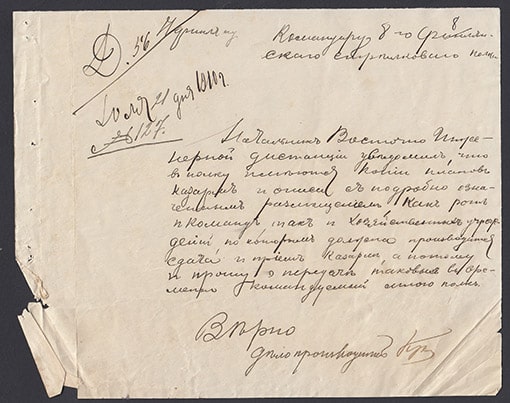 Д. 56
Командиру 8-го
скаго стрѣлковаго полка
Іюля 21 дня 1910 г.
№ 127.
Начальникъ Восточно Инже-
нерной дистанціи увѣдомилъ, что
въ полку имѣются копіи плановъ
казармъ и описи съ подробно озна-
ченнымъ размѣщеніемъ какъ ротъ
и командъ такъ и хозяйственныхъ учреж-
деній по которымъ должна производиться
сдача и пріемъ казармъ, а потому
и прошу о передачѣ таковыхъ въ
командуемый полкъ.
Вѣрно
Дѣлопроизводитель